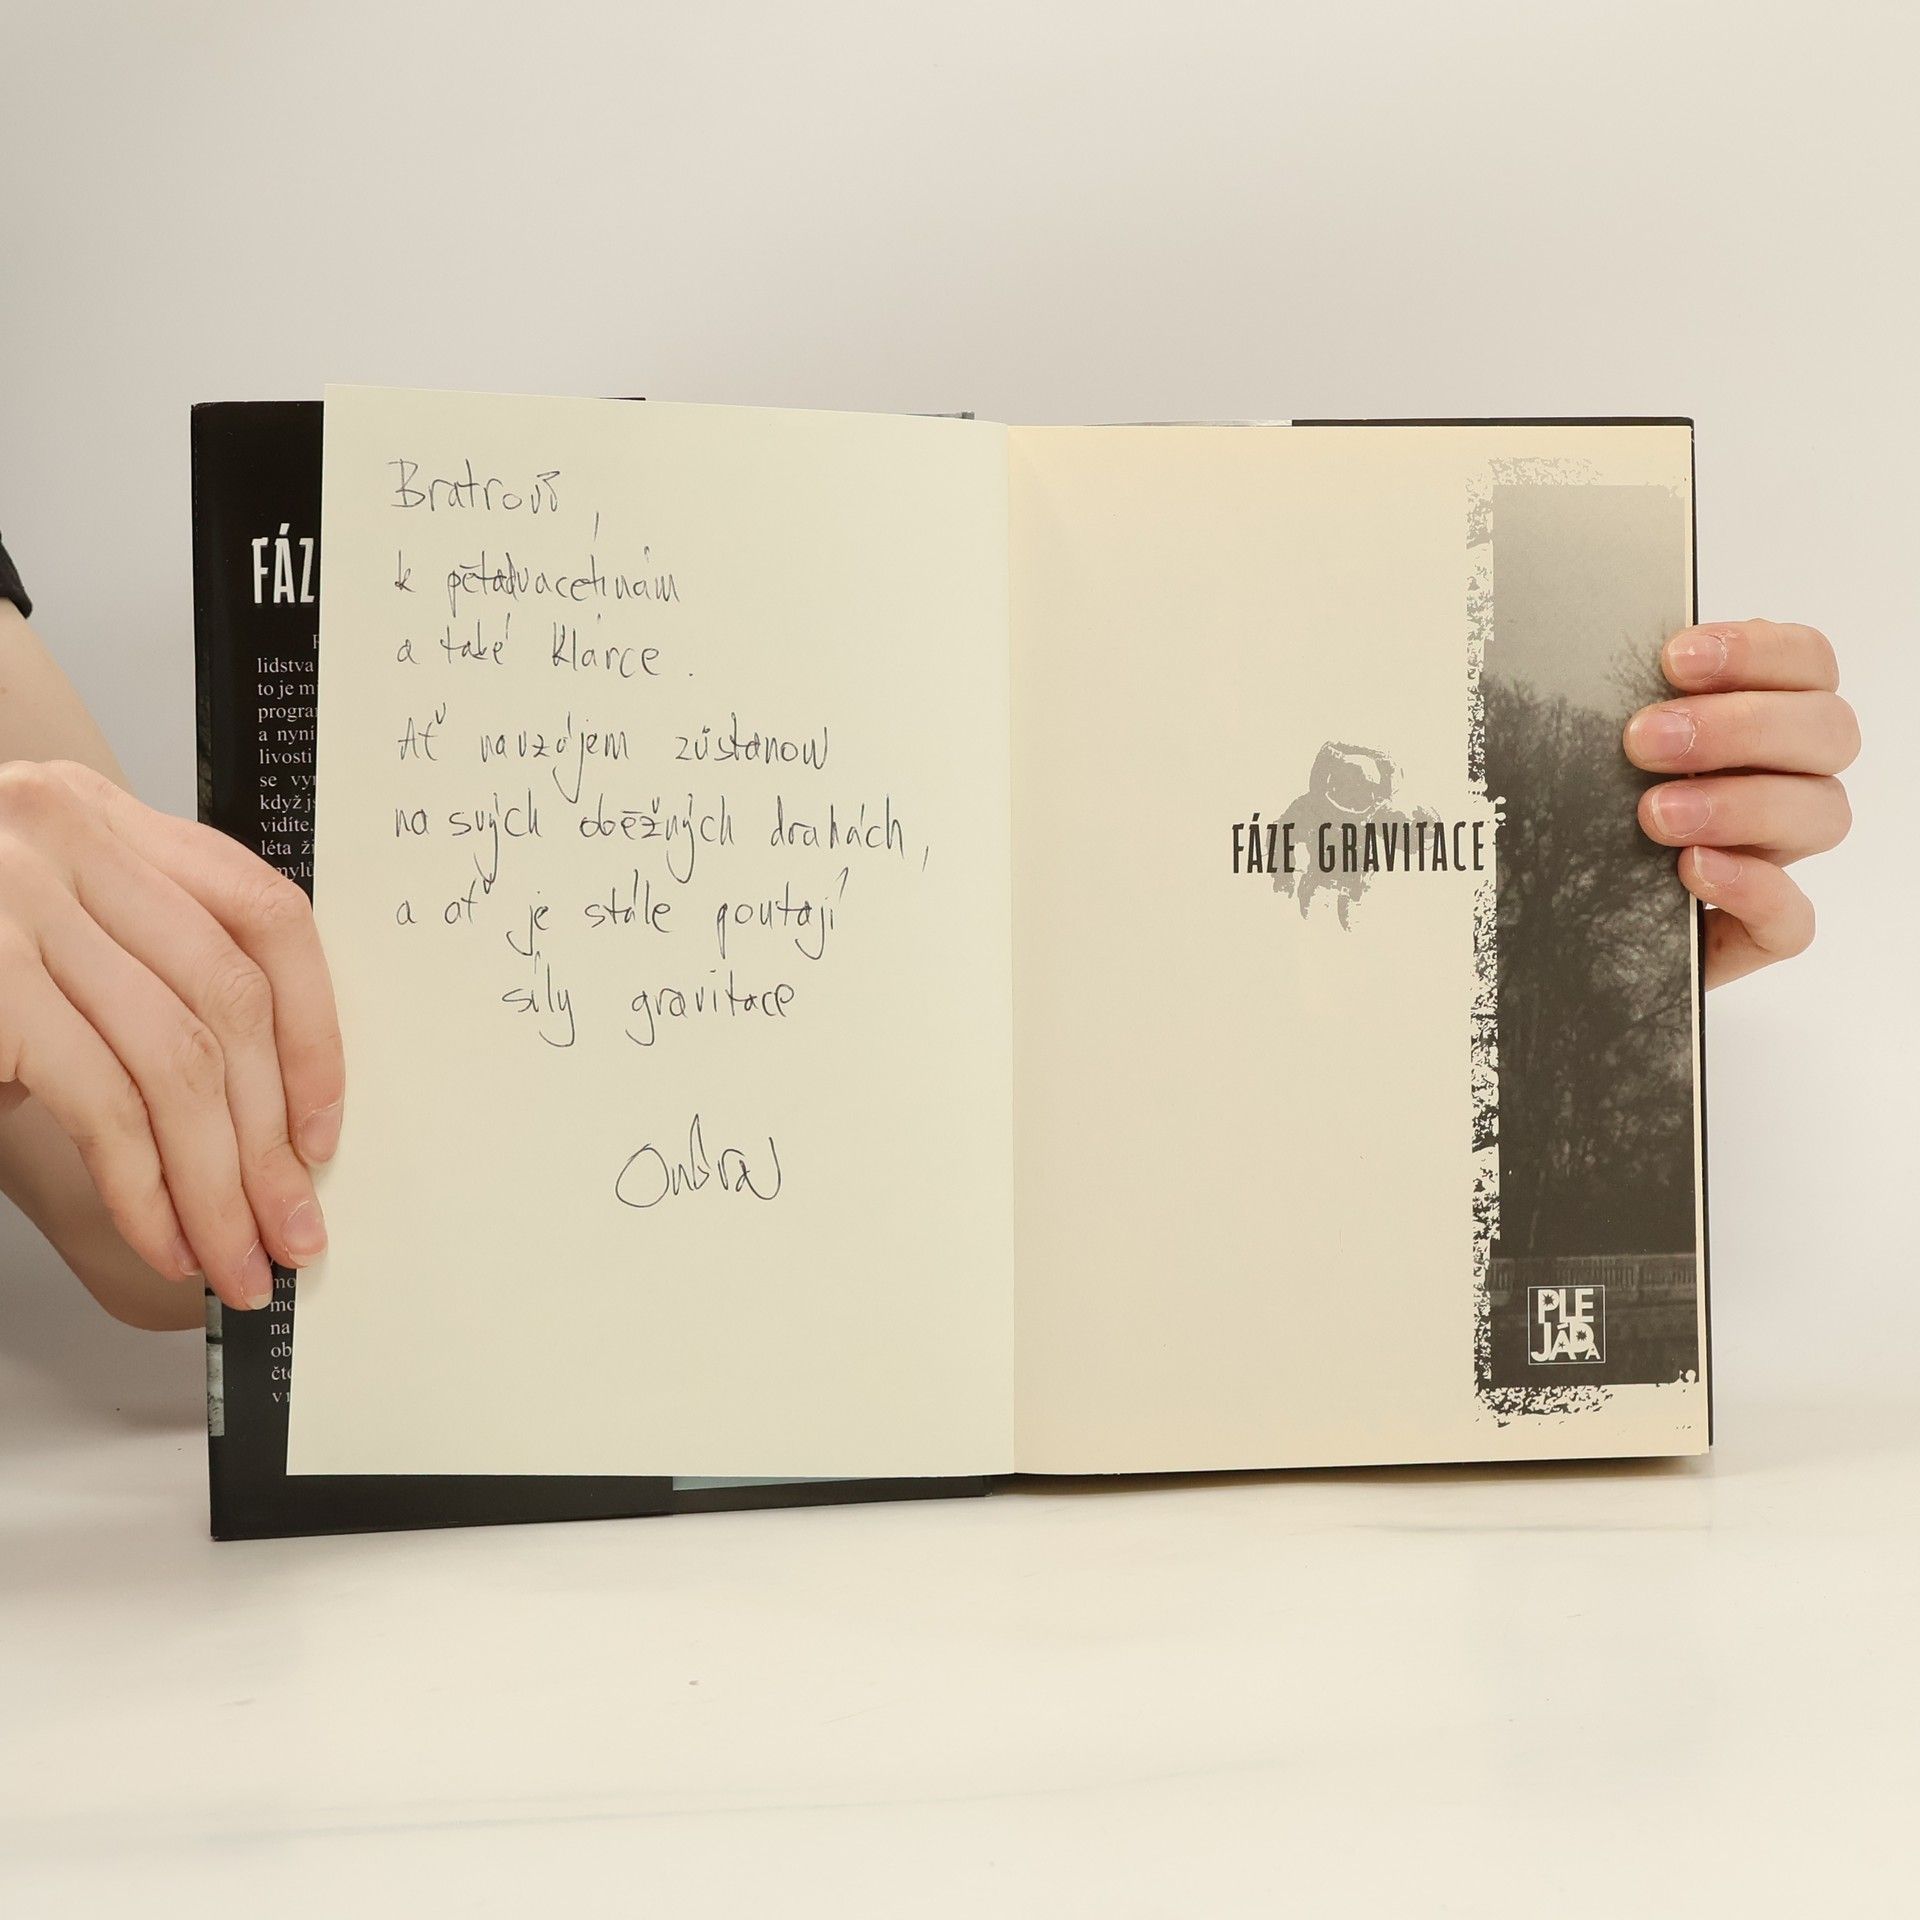 FÁZ
lidstva
to je m
progra
a nyní
livosti
se vy
když j
vidíte.
léta ž
mylů
mo
mo
na
ob
čt
v
Bratrovi,
k pětadvacetinám
a také Klárce.
Ať navzájem zůstanou
na svých oběžných drahách,
a ať je stále poutají
síly gravitace
Ondra
FÁZE GRAVITACE
PLE
JÁDA